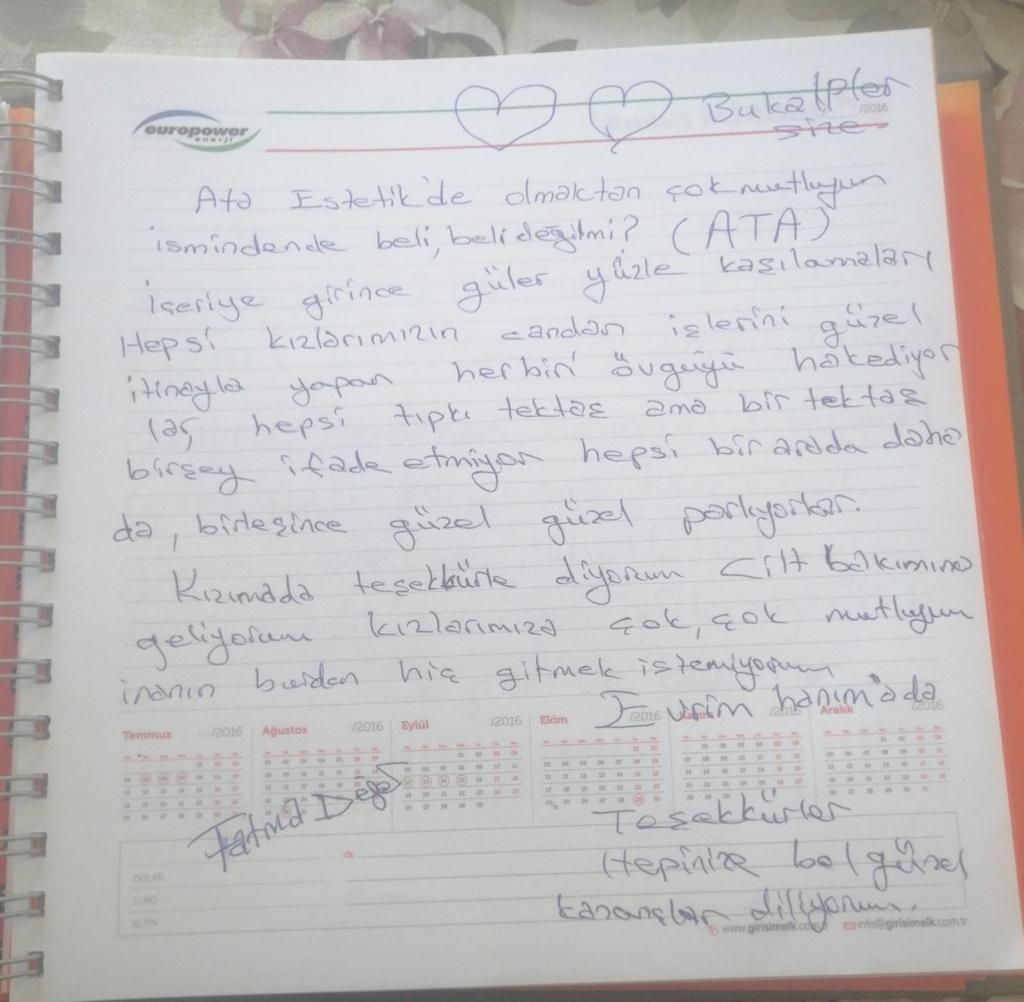 europower
enerji
Bu kalpler
/2016
size
Ata Estetik'de olmaktan çok mutluyum
ismindende beli, beli değilmi? (ATA)
içeriye girince güler yüzle kaşılamaları
Hepsi kızlarımızın candan işlerini güzel
itinayla yapan herbiri övgüyü hakediyor
lar, hepsi tıpkı tektaş ama bir tektaş
birşey ifade etmiyor hepsi bir arada daha
da, birleşince güzel güzel parlıyorlar.
Kızımada teşekkürle diyorum Cilt bakımına
geliyorum kızlarımıza çok, çok mutluyum
inanın burdan hiç gitmek istemiyorum
Evrim hanım'ada
Temmuz /2016 Ağustos /2016 Eylül /2016 Ekim /2016 /2016 Aralık /2016
Fatma
Teşekkürler
Hepinize bol güzel
kazançlar diliyorum.
DOLAR
EURO
ALTIN
www.girisimelk.com info@girisimelk.com.tr